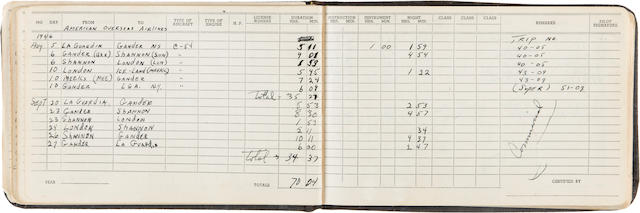 MO. DAY FROM TO TYPE OF AIRCRAFT TYPE OF ENGINE H.P. LICENSE NUMBERS DURATION HRS. MIN. INSTRUCTION HRS. MIN. INSTRUMENT HRS. MIN. NIGHT HRS. MIN. CLASS CLASS CLASS CLASS REMARKS PILOT SIGNATURE
AMERICAN OVERSEAS AIRLINES
1946 TRIP NO.
5 LA GUARDIA GANDER C-54 5 11 1 00 1 59 40-05
6 GANDER SHANNON 4 54 40-05
6 SHANNON LONDON 1 53 40-05
10 LONDON ICE-LAND 5 45 1 32 43-09
10 GANDER 7 24 43-09
10 GANDER LGA. N.Y. 6 09 (Super) 51-09
Total 35
Sept 20 LA GUARDIA GANDER 5 53 2 53
23 GANDER SHANNON 8 30 4 57
23 SHANNON LONDON 1 53
LONDON SHANNON 11 34
26 SHANNON GANDER 10 11 4 37
27 GANDER LA Guardia 6 00 2 47
Total 34 37
YEAR TOTALS 70 04 CERTIFIED BY